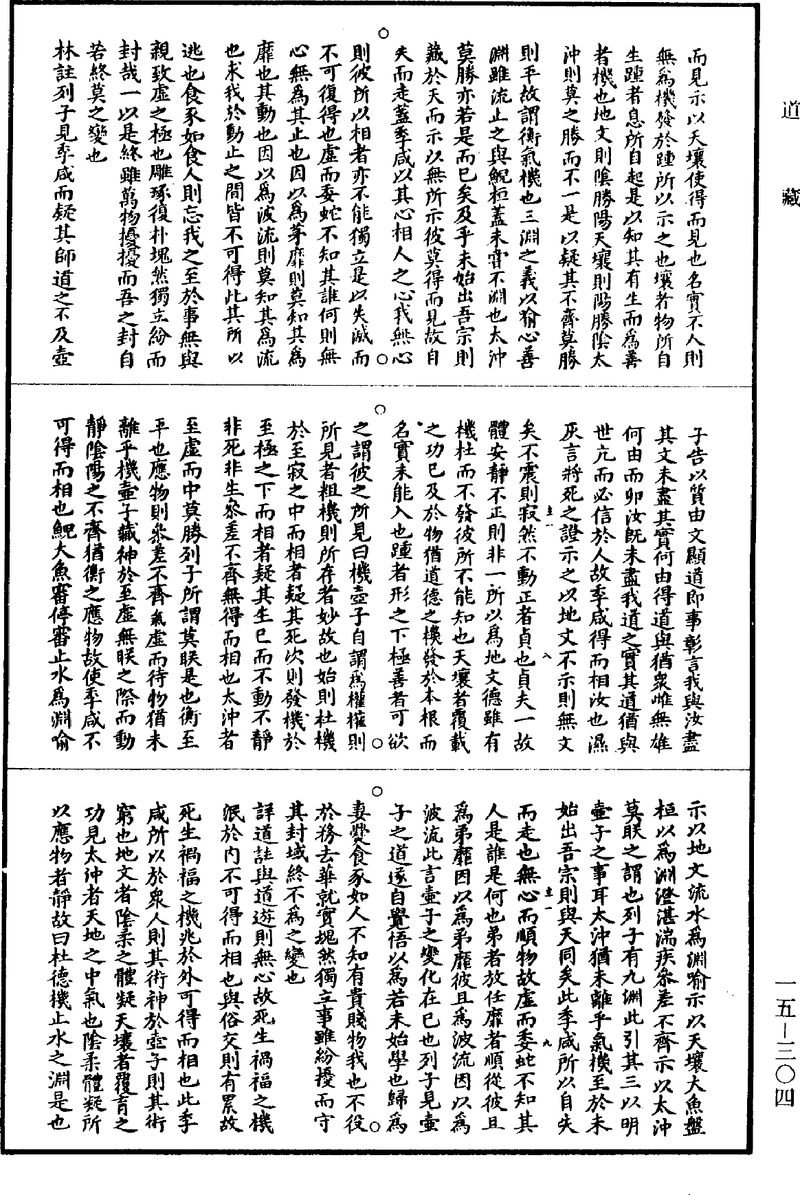 道藏
而見示以天壤使得而見也名實不入則
無為機發於踵所以示之也壤者物所自
生踵者息所自起是以知其有生而為善
者機也地文則陰勝陽天壤則陽勝陰太
沖則莫之勝而不一是以疑其不齊莫勝
則平故謂衡氣機也三淵之義以喻心善
淵雖流止之與鯢桓蓋未嘗不淵也太沖
莫勝亦若是而已矣及乎未始出吾宗則
藏於天而示以無所示彼莫得而見故自
失而走蓋季咸以其心相人之心我無心
則彼所以相者亦不能獨立是以失滅而
不可復得也虛而委蛇不知其誰何則無
心無為其止也因以為茅靡則莫知其為
靡也其動也因以為波流則莫知其為流
也求我於動止之間皆不可得此其所以
逃也食豕如食人則忘我之至於事無與
親致虛之極也雕琢復朴塊然獨立紛而
封哉一以是終雖萬物擾擾而吾之封自
若終莫之變也
林註列子見季咸而疑其師道之不及壺
子告以質由文顯道即事彰言我與汝盡
其文未盡其實何由得道與猶衆雌無雄
何由而卵汝既未盡我道之實其道猶與
世亢而必信於人故季咸得而相汝也濕
灰言將死之證示之以地文不示則無文
矣不震則寂然不動正者貞也貞夫一故
體安靜不正則非一所以為地文德雖有
機杜而不發彼所不能知也天壤者覆載
之功已及於物猶道德之機發於本根而
名實未能入也踵者形之下極善者可欲
之謂彼之所見曰機壺子自謂為權權則
所見者粗機則所存者妙故也始則杜機
於至寂之中而相者疑其死次則發機於
至極之下而相者疑其生已而不動不靜
非死非生叅差不齊無得而相也太沖者
至虛而中莫勝列子所謂莫眹是也衡至
平也應物則叅差不齊氣虛而待物猶未
離乎機壺子藏神於至虛無眹之際而動
靜陰陽之不齊猶衡之應物故使季咸不
可得而相也鯢大魚審停審止水為淵喻
示以地文流水為淵喻示以天壤大魚盤
桓以為淵澄湛湍疾叅差不齊示以太沖
莫眹之謂也列子有九淵此引其三以明
壺子之事耳太沖猶未離乎氣機至於未
始出吾宗則與天同矣此季咸所以自失
而走也無心而順物故虛而委蛇不知其
人是誰是何也弟者放任靡者順從彼且
為弟靡因以為弟靡彼且為波流因以為
波流此言壺子之變化在已也列子見壺
子之道遂自覺悟以為若未始學也歸為
妻㸑食豕如人不知有貴賤物我也不役
於務去華就實塊然獨立事雖紛擾而守
其封域終不為之變也
詳道註與道遊則無心故死生禍福之機
泯於內不可得而相也與俗交則有累故
死生禍福之機兆於外可得而相也此季
咸所以於衆人則其術神於壺子則其術
窮也地文者陰柔之體凝天壤者覆育之
功見太沖者天地之中氣也陰柔體凝所
以應物者靜故曰杜德機止水之淵是也
一五—三〇四